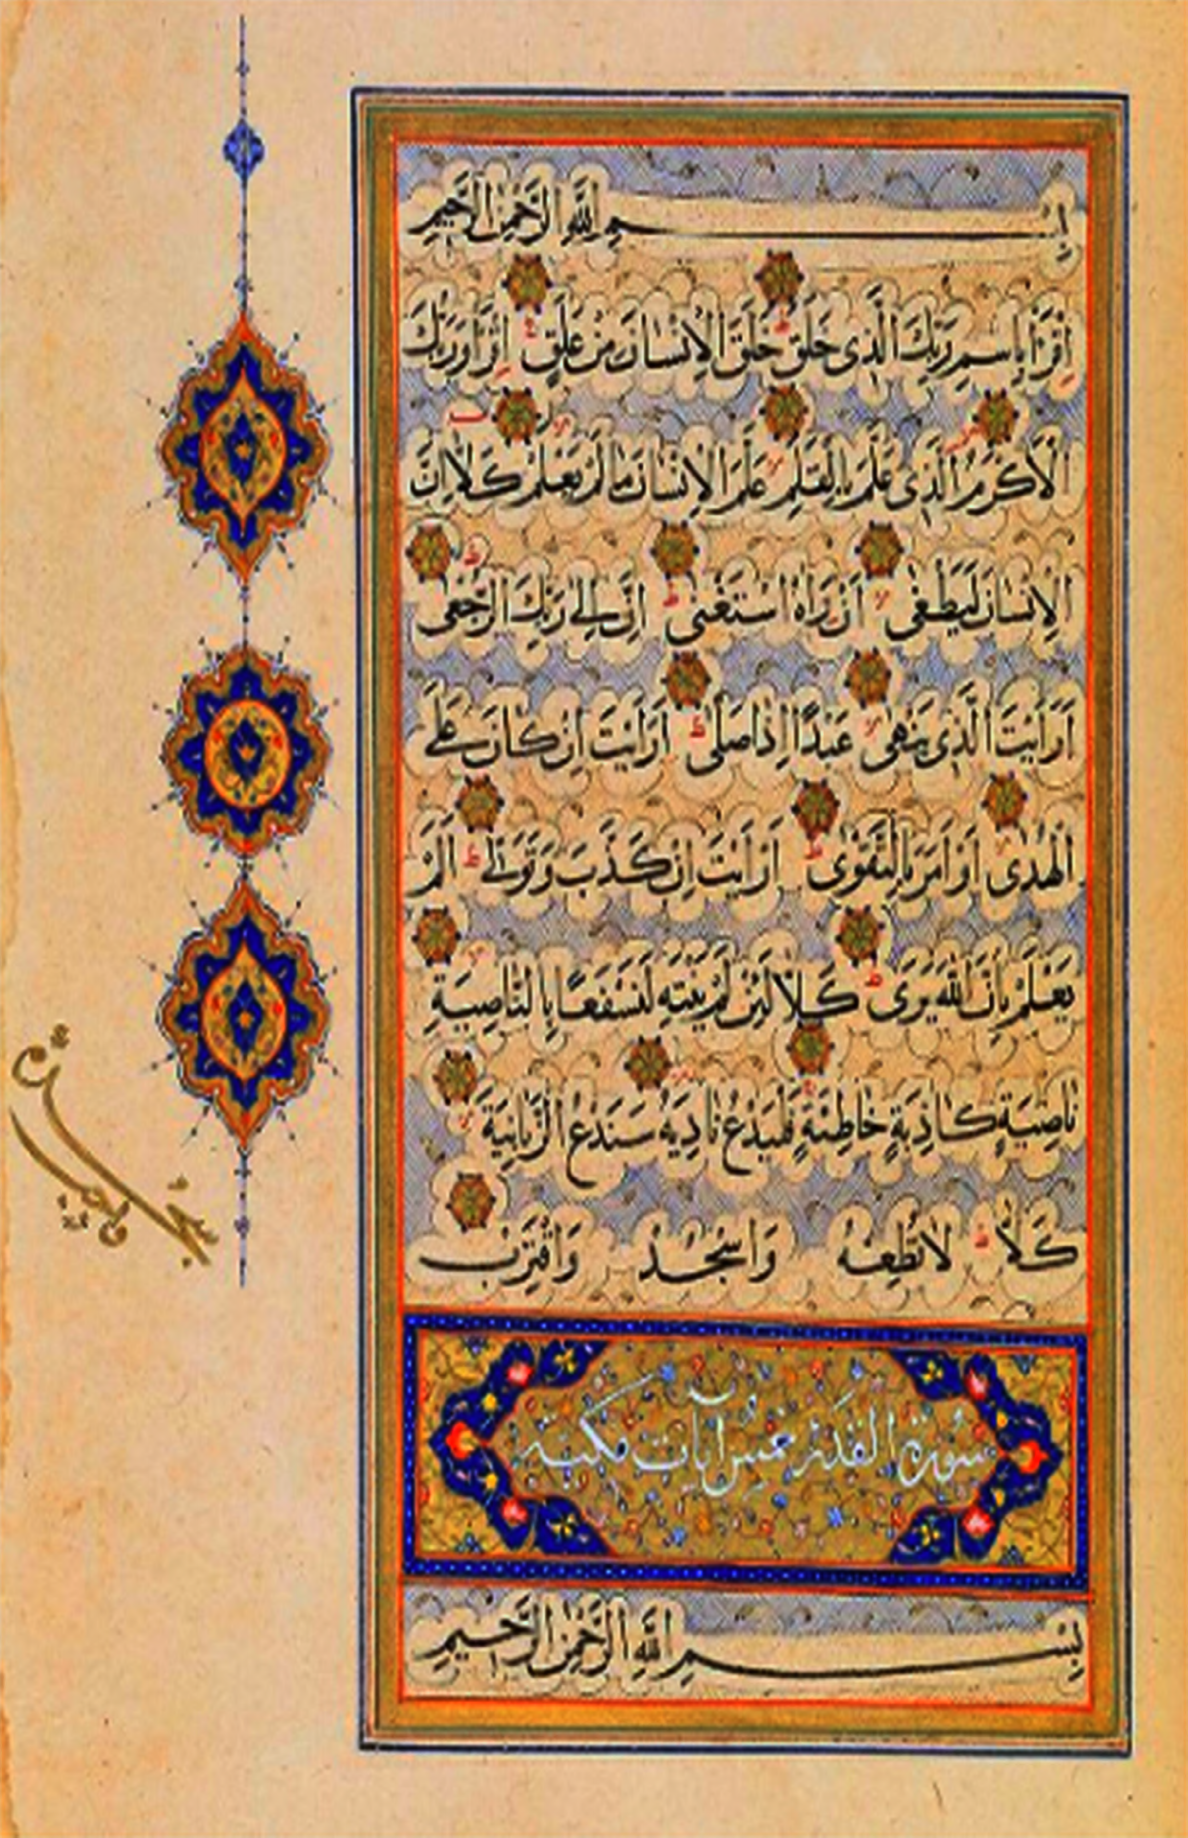 بِسْمِ اللَّهِ الرَّحْمٰنِ الرَّحِيمِ
اِقْرَأْ بِاسْمِ رَبِّكَ الَّذِى خَلَقَ خَلَقَ الْاِنْسَانَ مِنْ عَلَقٍ اِقْرَأْ وَرَبُّكَ
الْاَكْرَمُ الَّذِى عَلَّمَ بِالْقَلَمِ عَلَّمَ الْاِنْسَانَ مَا لَمْ يَعْلَمْ كَلَّا اِنَّ
الْاِنْسَانَ لَيَطْغٰى اَنْ رَاٰهُ اسْتَغْنٰى اِنَّ اِلٰى رَبِّكَ الرُّجْعٰى
اَرَاَيْتَ الَّذِى يَنْهٰى عَبْدًا اِذَا صَلّٰى اَرَاَيْتَ اِنْ كَانَ عَلَى
الْهُدٰى اَوْ اَمَرَ بِالتَّقْوٰى اَرَاَيْتَ اِنْ كَذَّبَ وَتَوَلّٰى اَلَمْ
يَعْلَمْ بِاَنَّ اللّٰهَ يَرٰى كَلَّا لَئِنْ لَمْ يَنْتَهِ لَنَسْفَعًا بِالنَّاصِيَةِ
نَاصِيَةٍ كَاذِبَةٍ خَاطِئَةٍ فَلْيَدْعُ نَادِيَهُ سَنَدْعُ الزَّبَانِيَةَ
كَلَّا لَا تُطِعْهُ وَاسْجُدْ وَاقْتَرِبْ
سورة القدر خمس آيات مكية
بِسْمِ اللَّهِ الرَّحْمٰنِ الرَّحِيمِ